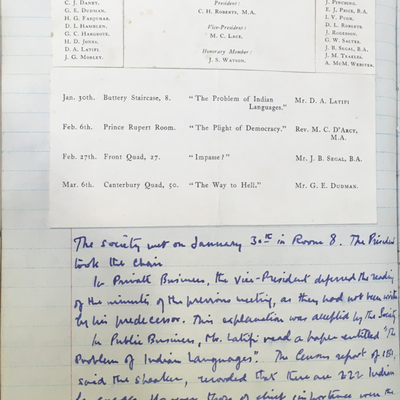 C. J. Danby.
G. E. Dudman.
H. G. Farquhar.
D. I. Hamblen.
G. C. Hargrote.
H. D. Jones.
D. A. Latifi.
J. G. Morley.
President:
C. H. Roberts, M.A.
Vice-President:
M. C. Lace.
Honorary Member:
J. S. Watson.
J. Pinching.
E. J. Price, B.A.
I. V. Pugh.
D. L. Roberts
J. Rogerson.
G. W. Salter.
J. B. Segal, B.A.
J. M. Teakers.
A. McM. Webster.
Jan. 30th. Buttery Staircase, 8. "The Problem of Indian Languages." Mr. D. A. Latifi
Feb. 6th. Prince Rupert Room. "The Plight of Democracy." Rev. M. C. D'Arcy, M.A.
Feb. 27th. Front Quad, 27. "Impasse?" Mr. J. B. Segal, B.A.
Mar. 6th. Canterbury Quad, 50. "The Way to Hell." Mr. G. E. Dudman.
The society met on January 30th in Room 8. The President
took the Chair
In Private Business, the Vice-President deferred the reading
of the minutes of the previous meeting, as they had not been written
by his predecessor. This explanation was accepted by the Society
In Public Business, Mr. Latifi read a paper entitled "The
Problem of Indian Languages". The Census report of
said the speaker, recorded that there are 222 Indian
languages. However those of chief importance were the